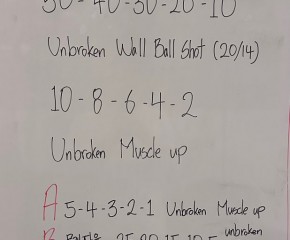 50 - 40 - 30 - 20 - 10
Unbroken Wall Ball Shot (20/14)
10 - 8 - 6 - 4 - 2
Unbroken Muscle up
A 5-4-3-2-1 Unbroken Muscle up
B 25 20 15 10 5 unbroken